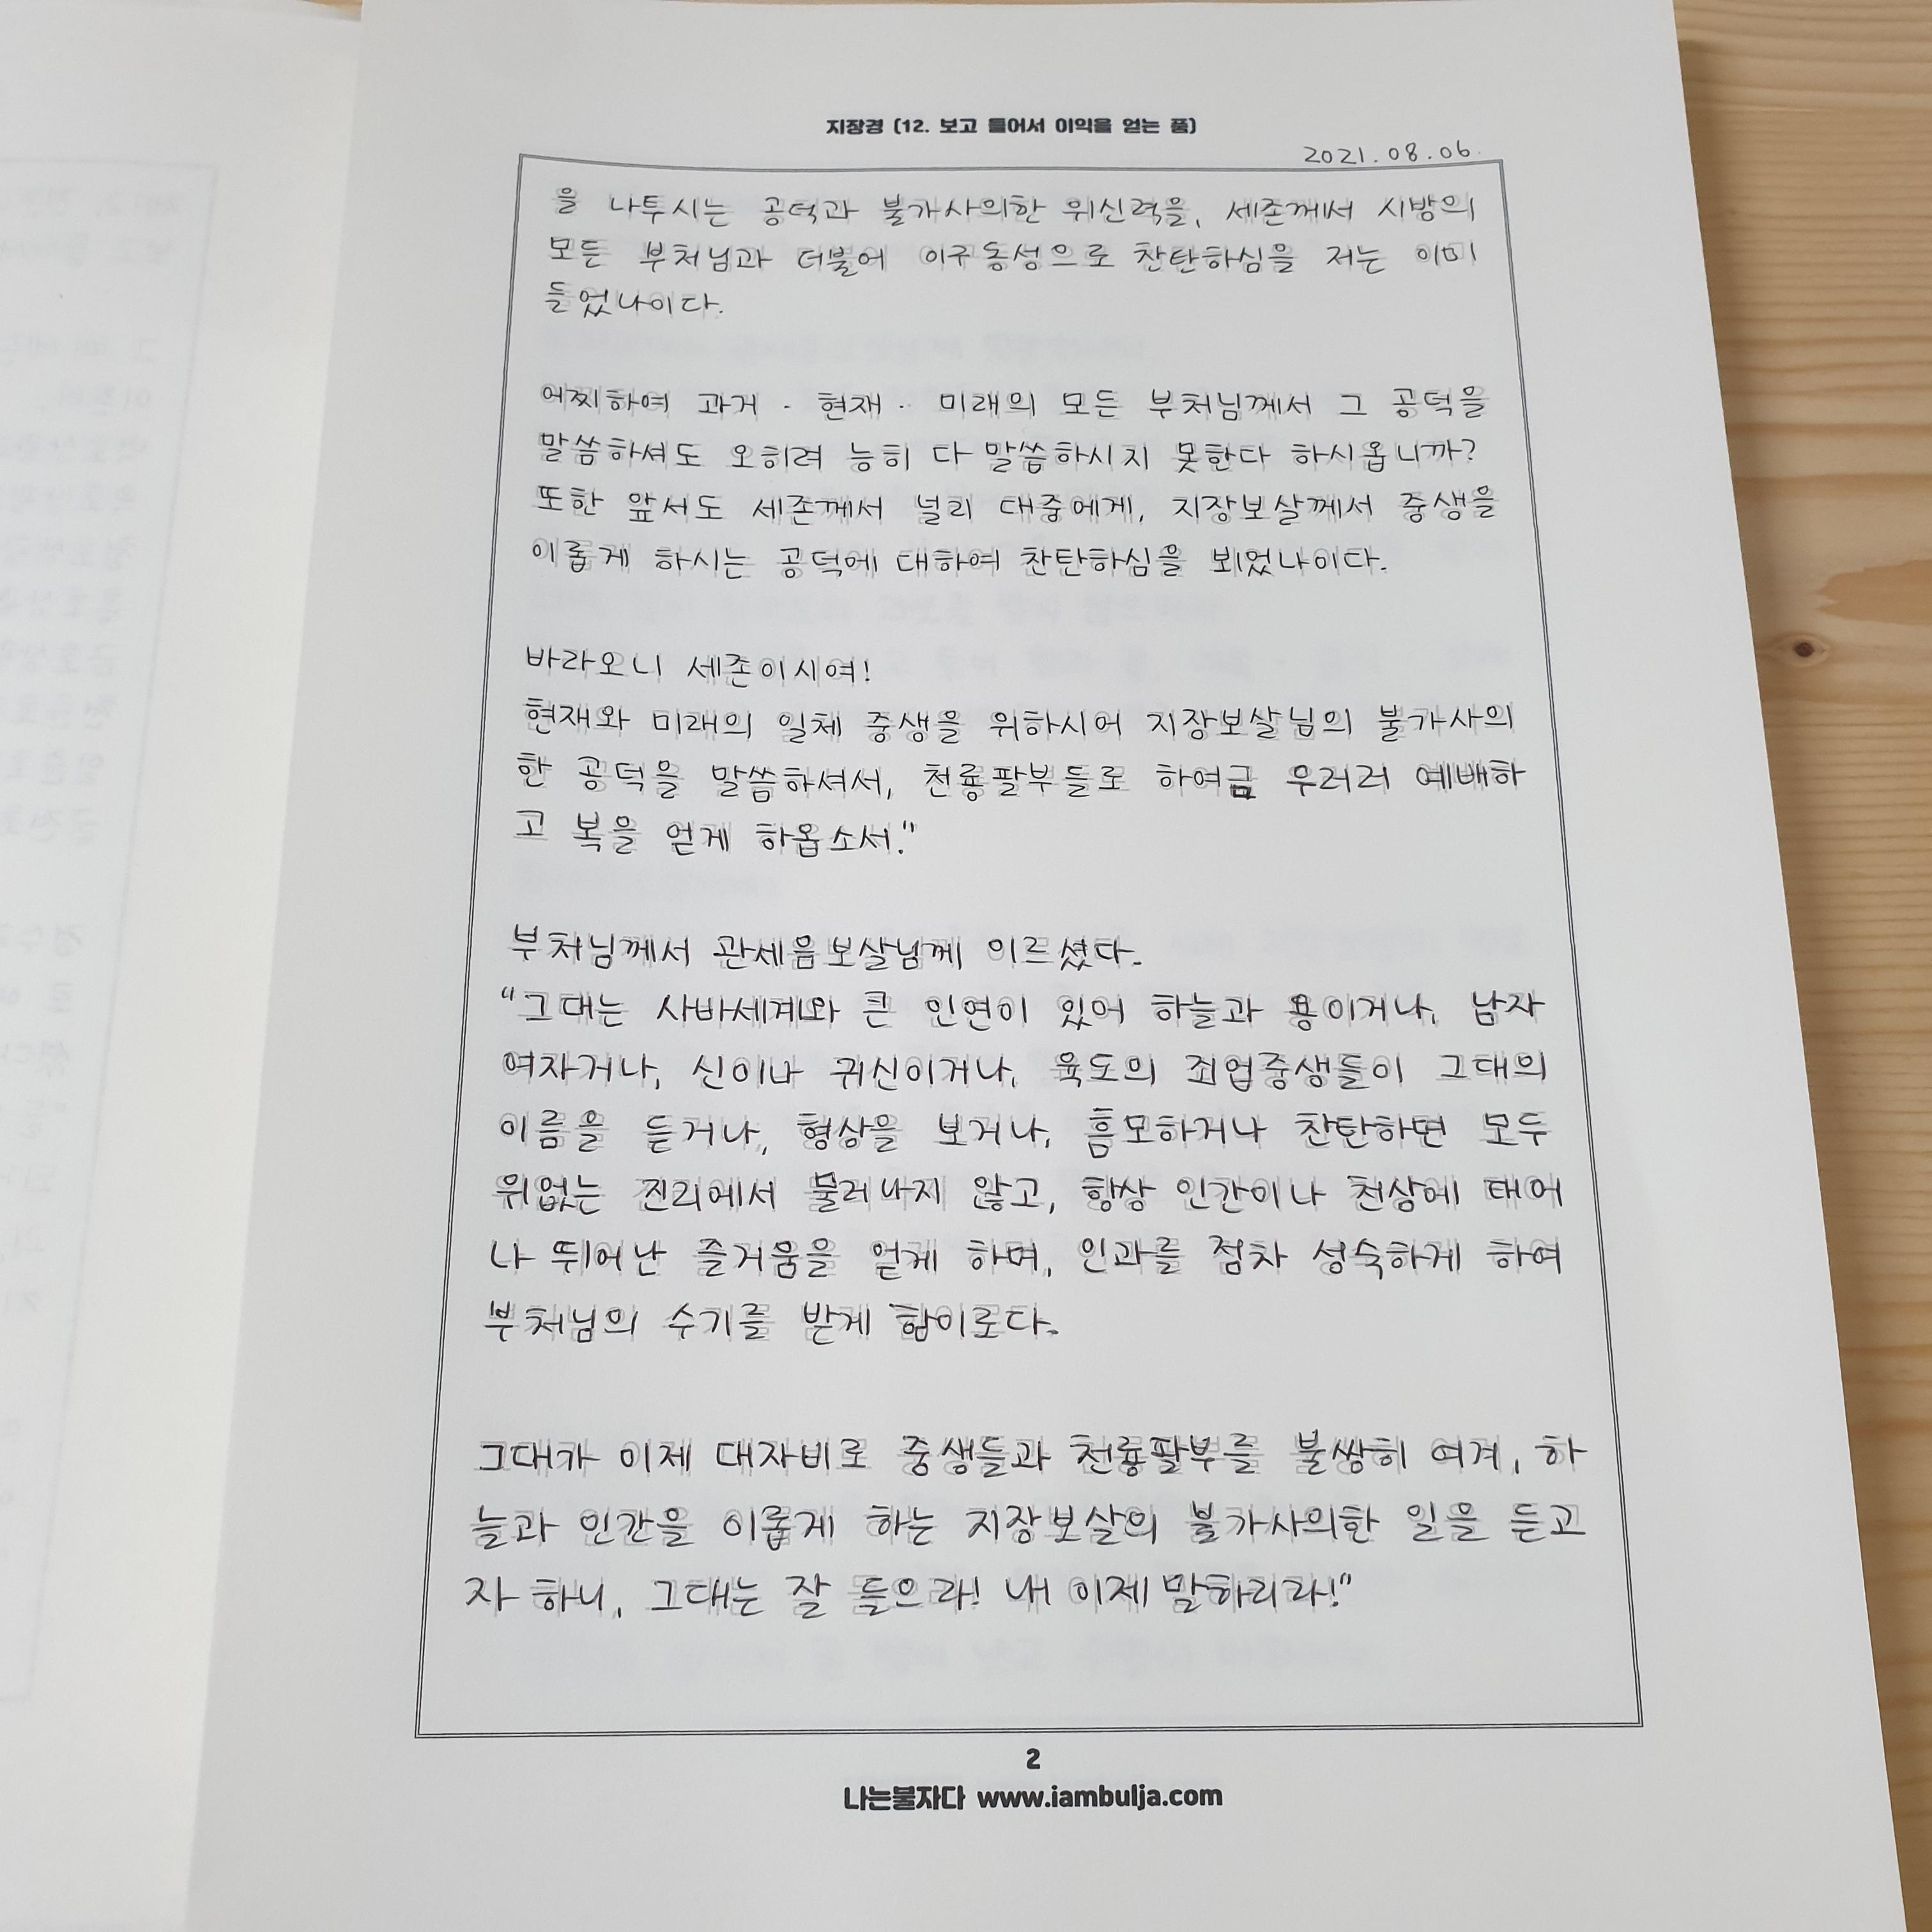 지장경 (12. 보고 들어서 이익을 얻는 품)
2021.08.06
을 나투시는 공덕과 불가사의한 위신력을, 세존께서 시방의
모든 부처님과 더불어 이구동성으로 찬탄하심을 저는 이미
들었나이다.
어찌하여 과거 · 현재 · 미래의 모든 부처님께서 그 공덕을
말씀하셔도 오히려 능히 다 말씀하시지 못한다 하시옵니까?
또한 앞서도 세존께서 널리 대중에게, 지장보살께서 중생을
이롭게 하시는 공덕에 대하여 찬탄하심을 뵈었나이다.
바라오니 세존이시여!
현재와 미래의 일체 중생을 위하시어 지장보살님의 불가사의
한 공덕을 말씀하셔서, 천룡팔부들로 하여금 우러러 예배하
고 복을 얻게 하옵소서."
부처님께서 관세음보살님께 이르셨다.
"그대는 사바세계와 큰 인연이 있어 하늘과 용이거나, 남자
여자거나, 신이나 귀신이거나, 육도의 죄업중생들이 그대의
이름을 듣거나, 형상을 보거나, 흠모하거나 찬탄하면 모두
위없는 진리에서 물러나지 않고, 항상 인간이나 천상에 태어
나 뛰어난 즐거움을 얻게 하며, 인과를 점차 성숙하게 하여
부처님의 수기를 받게 함이로다.
그대가 이제 대자비로 중생들과 천룡팔부를 불쌍히 여겨, 하
늘과 인간을 이롭게 하는 지장보살의 불가사의한 일을 듣고
자 하니, 그대는 잘 들으라! 내 이제 말하리라!"
2
나는불자다 www.iambulja.com